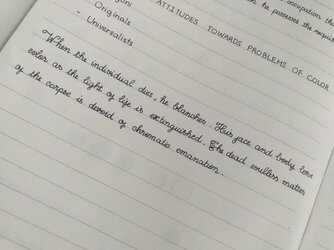 occupation, the
he possesses the requi
ATTITUDES TOWARDS PROBLEMS OF COLOR
- Originals
- Universalists
When the individual dies, he blanches. His face and body lose
color as the light of life is extinguished. The dead soulless matter
of the corpse is devoid of chromatic emanation.